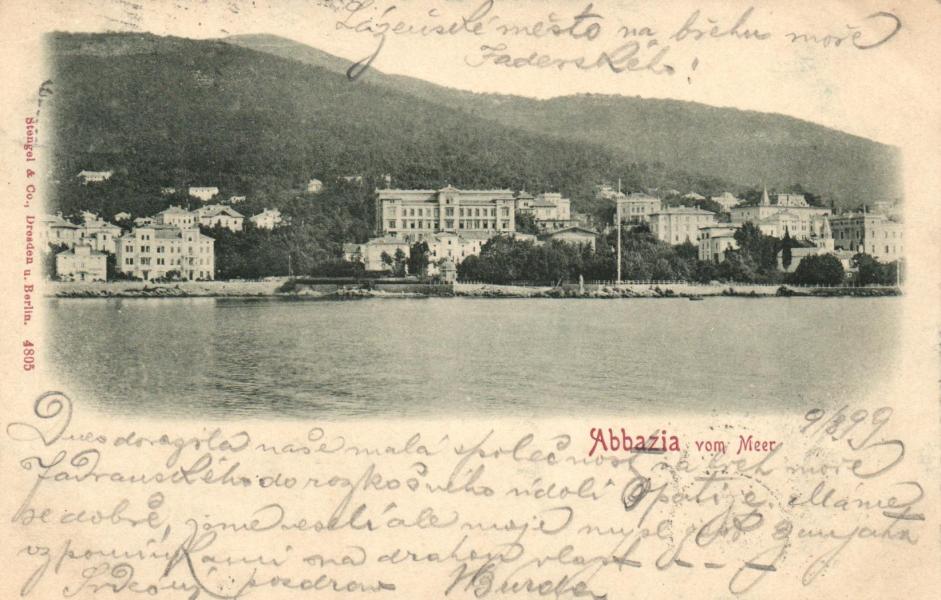 Lázeňské město na břehu moře
Jaderského!
Stengel & Co., Dresden u. Berlin. 4805
Abbazia vom Meer
9/8 99
Dnes dorazila naše malá společnost na břeh moře
Jadranského do rozkošného údolí Opatije. Máme
se dobře, jsme veselí ale moje mysl jest zaujata
vzpomínkami na drahou vlast
Srdečný pozdrav Burda